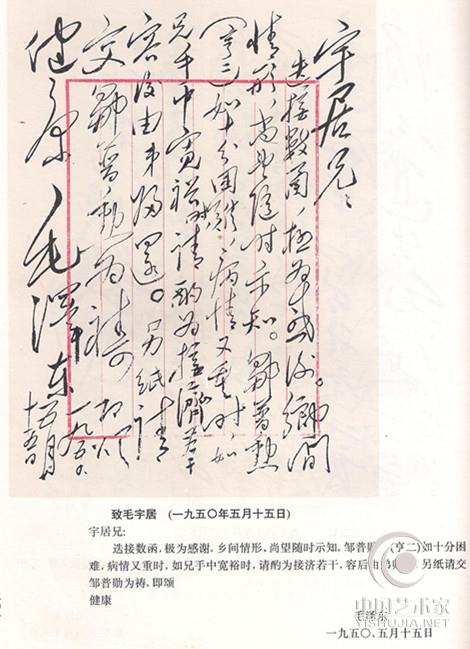 宇居兄：
迭接数函，极为感谢。鄉间
情形，尚望随时示知。鄒普勳
（亨二）如十分困难，病情又重时，如
兄手中宽裕时，请酌为接濟若干
容后由弟归还。另纸请
交鄒普勳为祷。即颂
健康 毛澤东
一九五〇
五月
十五日
致毛宇居 (一九五〇年五月十五日)
宇居兄：
迭接数函，极为感谢。乡间情形，尚望随时示知。邹普勋(亨二)如十分困
难，病情又重时，如兄手中宽裕时，请酌为接济若干，容后由弟归还。另纸请交
邹普勋为祷。即颂
健康
毛泽东
一九五〇、五月十五日
中国艺术家
YISHUJIA.NET